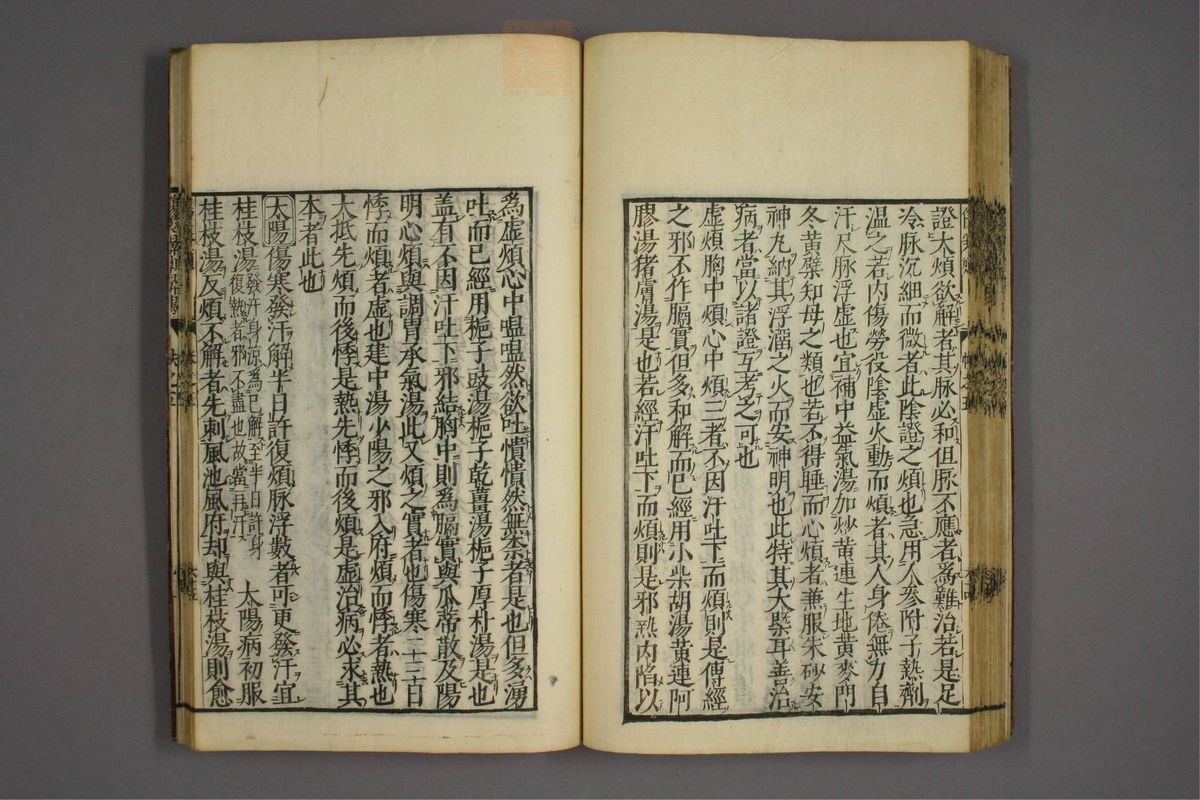 證大煩欲解者其脉必和但脉不應者爲難治若是足
冷脉沉細而微者此陰證之煩也急用人參附子熱劑
温之若内傷勞役陰虚火動而煩者其人身倦無力自
汗尺脉浮虚也宜補中益氣湯加炒黄連生地黄麥門
冬黄蘗知母之類也若不得睡而心煩者兼服朱砂安
神丸納其浮溜之火而安神明也此特其大槩耳善治
病者當以諸證互考之可也
虚煩胸中煩心中煩三者不因汗吐下而煩則是傳經
之邪不作膈實但多和解而已經用小柴胡湯黄連阿
膠湯猪膚湯是也若經汗吐下而煩則是邪熱内陷以
爲虚煩心中嗢嗢然欲吐憒憒然無柰者是也但多湧
吐而已經用梔子豉湯梔子乾薑湯梔子厚朴湯是也
盖有不因汗吐下邪結胸中則爲膈實與瓜蒂散及陽
明心煩與調胃承氣湯此又煩之實者也傷寒二十三日
悸而煩者虚也建中湯少陽之邪入府煩而悸者熱也
大抵先煩而後悸是熱先悸而後煩是虚治病必求其
本者此也
太陽傷寒發汗解半日許復煩脉浮數者可更發汗宜
桂枝湯發汗身涼爲已解至半日許身復熱者邪不盡也故當再汗 太陽病初服
桂枝湯反煩不解者先刺風池風府却與桂枝湯則愈